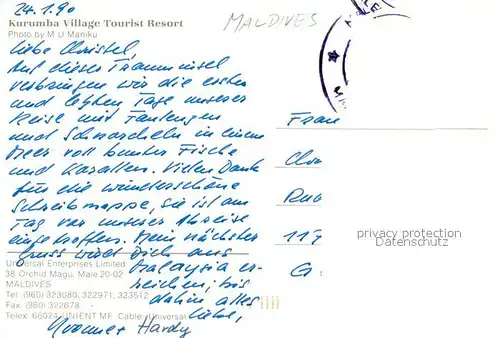 24.1.90
Kurumba Village Tourist Resort
Photo by M U Maniku
MALDIVES
Liebe Christel,
Auf dieser Trauminsel
verbringen wir die ersten
und letzten Tage unserer
Reise mit Faulenzen
und Schnorcheln in einem
Meer voll bunter Fische
und Korallen. Vielen Dank
für die wunderschöne
Schreibmappe, sie ist am
Tag vor unserer Abreise
eingetroffen. Mein nächster
Gruss wird Dich aus
Malaysia er-
reichen; bis
dahin alles
Liebe,
Hardy
Universal Enterprises Limited
38 Orchid Magu, Male 20-02
MALDIVES
Tel: (960) 323080, 322971, 323512
Fax: (960) 322678
Telex: 66024 UNIENT MF. Cable: Universal
Frau
117
G
privacy protection
Datenschutz